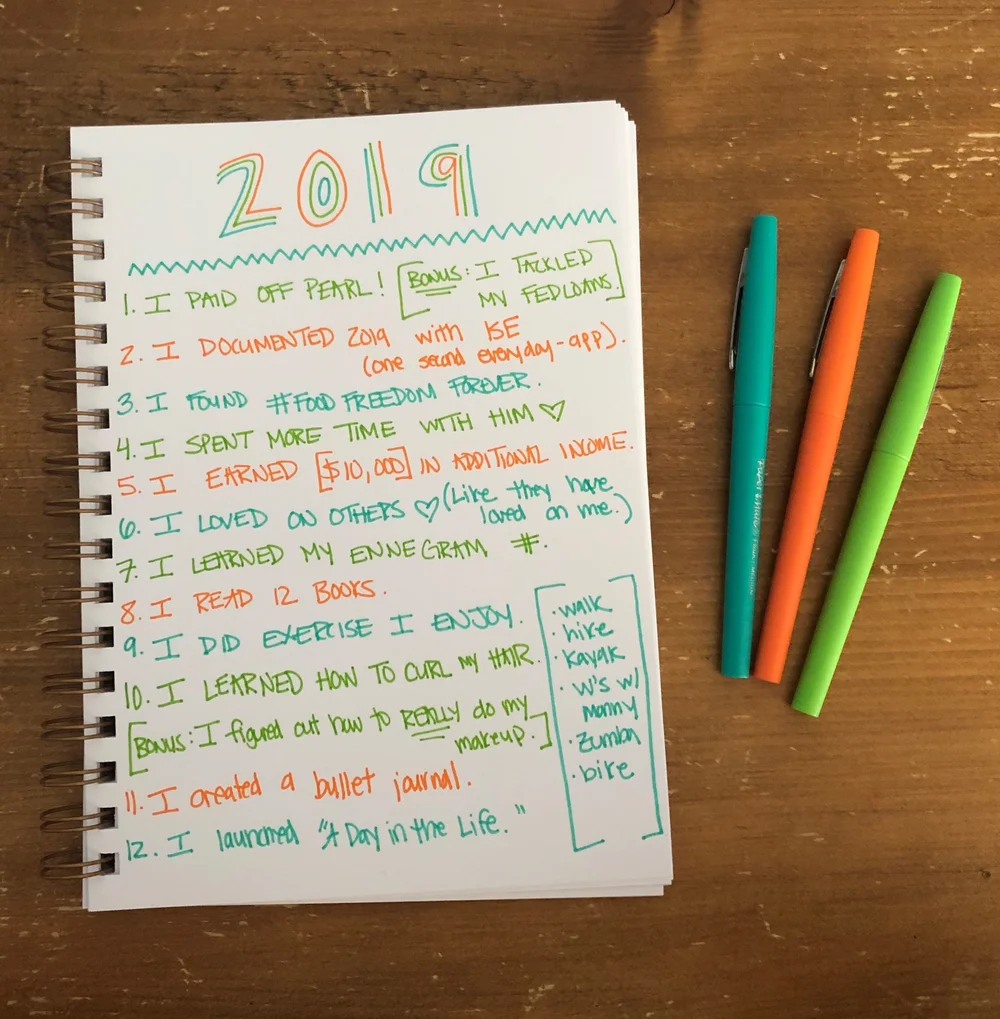 2019
1. I PAID OFF PEARL! [BONUS: I TACKLED
MY FEDLOANS.]
2. I DOCUMENTED 2019 with 1SE
(one second everyday - app).
3. I FOUND #FOOD FREEDOM FOREVER.
4. I SPENT MORE TIME WITH HIM ♡
5. I EARNED [$10,000] IN ADDITIONAL INCOME.
6. I LOVED ON OTHERS ♡ (Like they have
loved on me.)
7. I LEARNED MY ENNEGRAM #.
8. I READ 12 BOOKS.
9. I DID EXERCISE I ENJOY.
• walk
• hike
• kayak
• W's w/
Manny
• Zumba
• bike
10. I LEARNED HOW TO CURL MY HAIR.
[BONUS: I figured out how to REALLY do my
makeup.]
11. I created a bullet journal.
12. I launched "A Day in the Life."